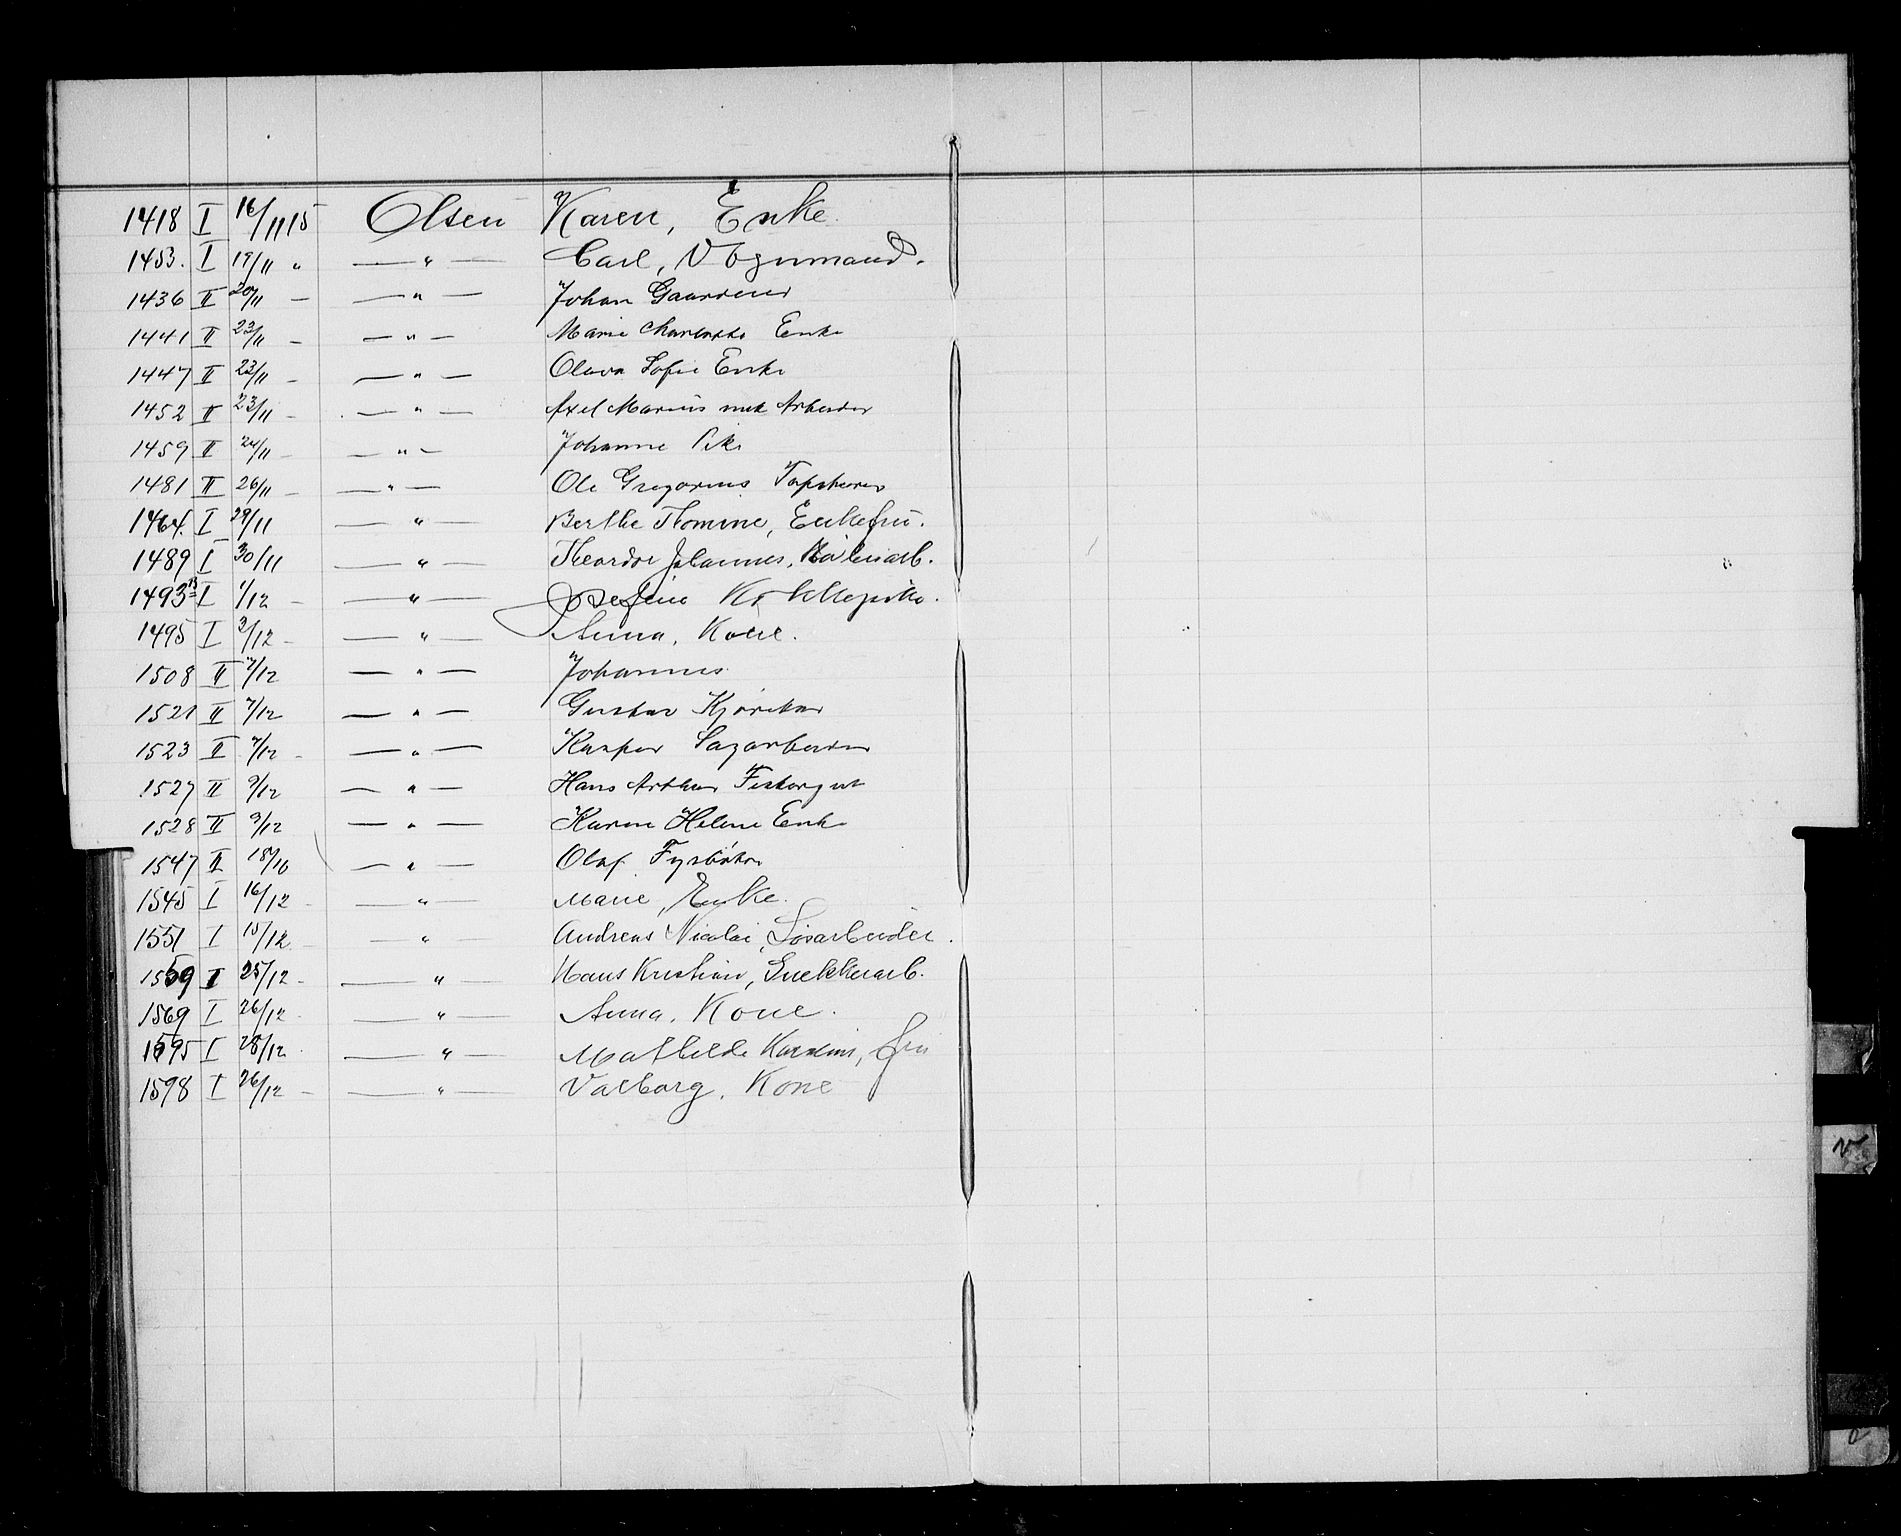 1418 I 16/11 15 Olsen Karen, Enke.
1453. I 19/11 " — " — Carl, Vognmand.
1436 II 20/11 — — " — Johan Gaardener
1441 II 23/11 — — " — Marie Enke
1447 II 23/11 — — " — Olava Sofie Enke
1452 II 23/11 — — " — Axel Marius mek Arbeider
1459 II 24/11 — — " — Johanne Pike
1481 II 26/11 — — " — Ole Gregorius
1464. I 29/11 — " — Berthe Tomine, Enkefru.
1489 I 30/11 — " — Teordor Johannes,
1493 B I 1/12 — — " — Josefine Kokkepike.
1495 I 3/12 — — " — Anna, Kone.
1508 II 7/12 — " — Johannes
1521 II 7/12 — " — Gustav Kjørekar
1523 II 7/12 — — " — Kasper Sagarbeider
1527 II 9/12 — " — Hans Arthur Fiskergut
1528 II 9/12 — " — Karen Helene Enke
1547 II 18/10 — " — Olaf Fyrbøter
1545 I 16/12 — — " — Marie, Enke.
1551 I 15/12 — — " — Andreas Nicolai, Løsarbeider.
1559 I 25/12 — — " — Hans Kristian,
1569 I 26/12 — — " — Anna, Kone.
1595 I 28/12 — " — Mathilde Karoline, fru
1598 I 26/12 — — " — Valborg, Kone
V
O